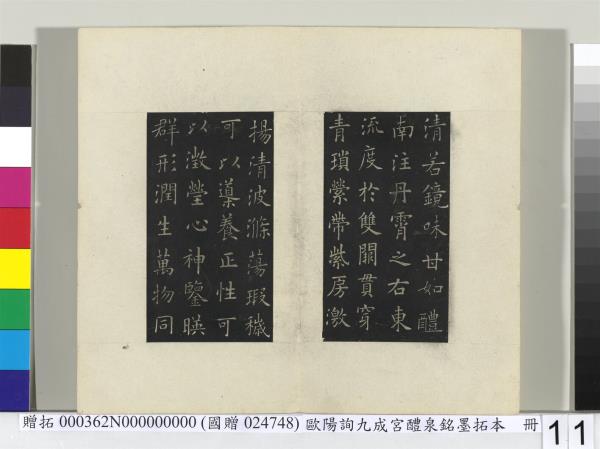 清若鏡味甘如醴
南注丹霄之右東
流度於雙闕貫穿
青瑣縈帶紫房激
揚清波滌蕩瑕穢
可以導養正性可
以澂瑩心神鑒暎
群形潤生萬物同
贈拓 000362N000000000 (國贈 024748) 歐陽詢九成宮醴泉銘墨拓本 冊
11